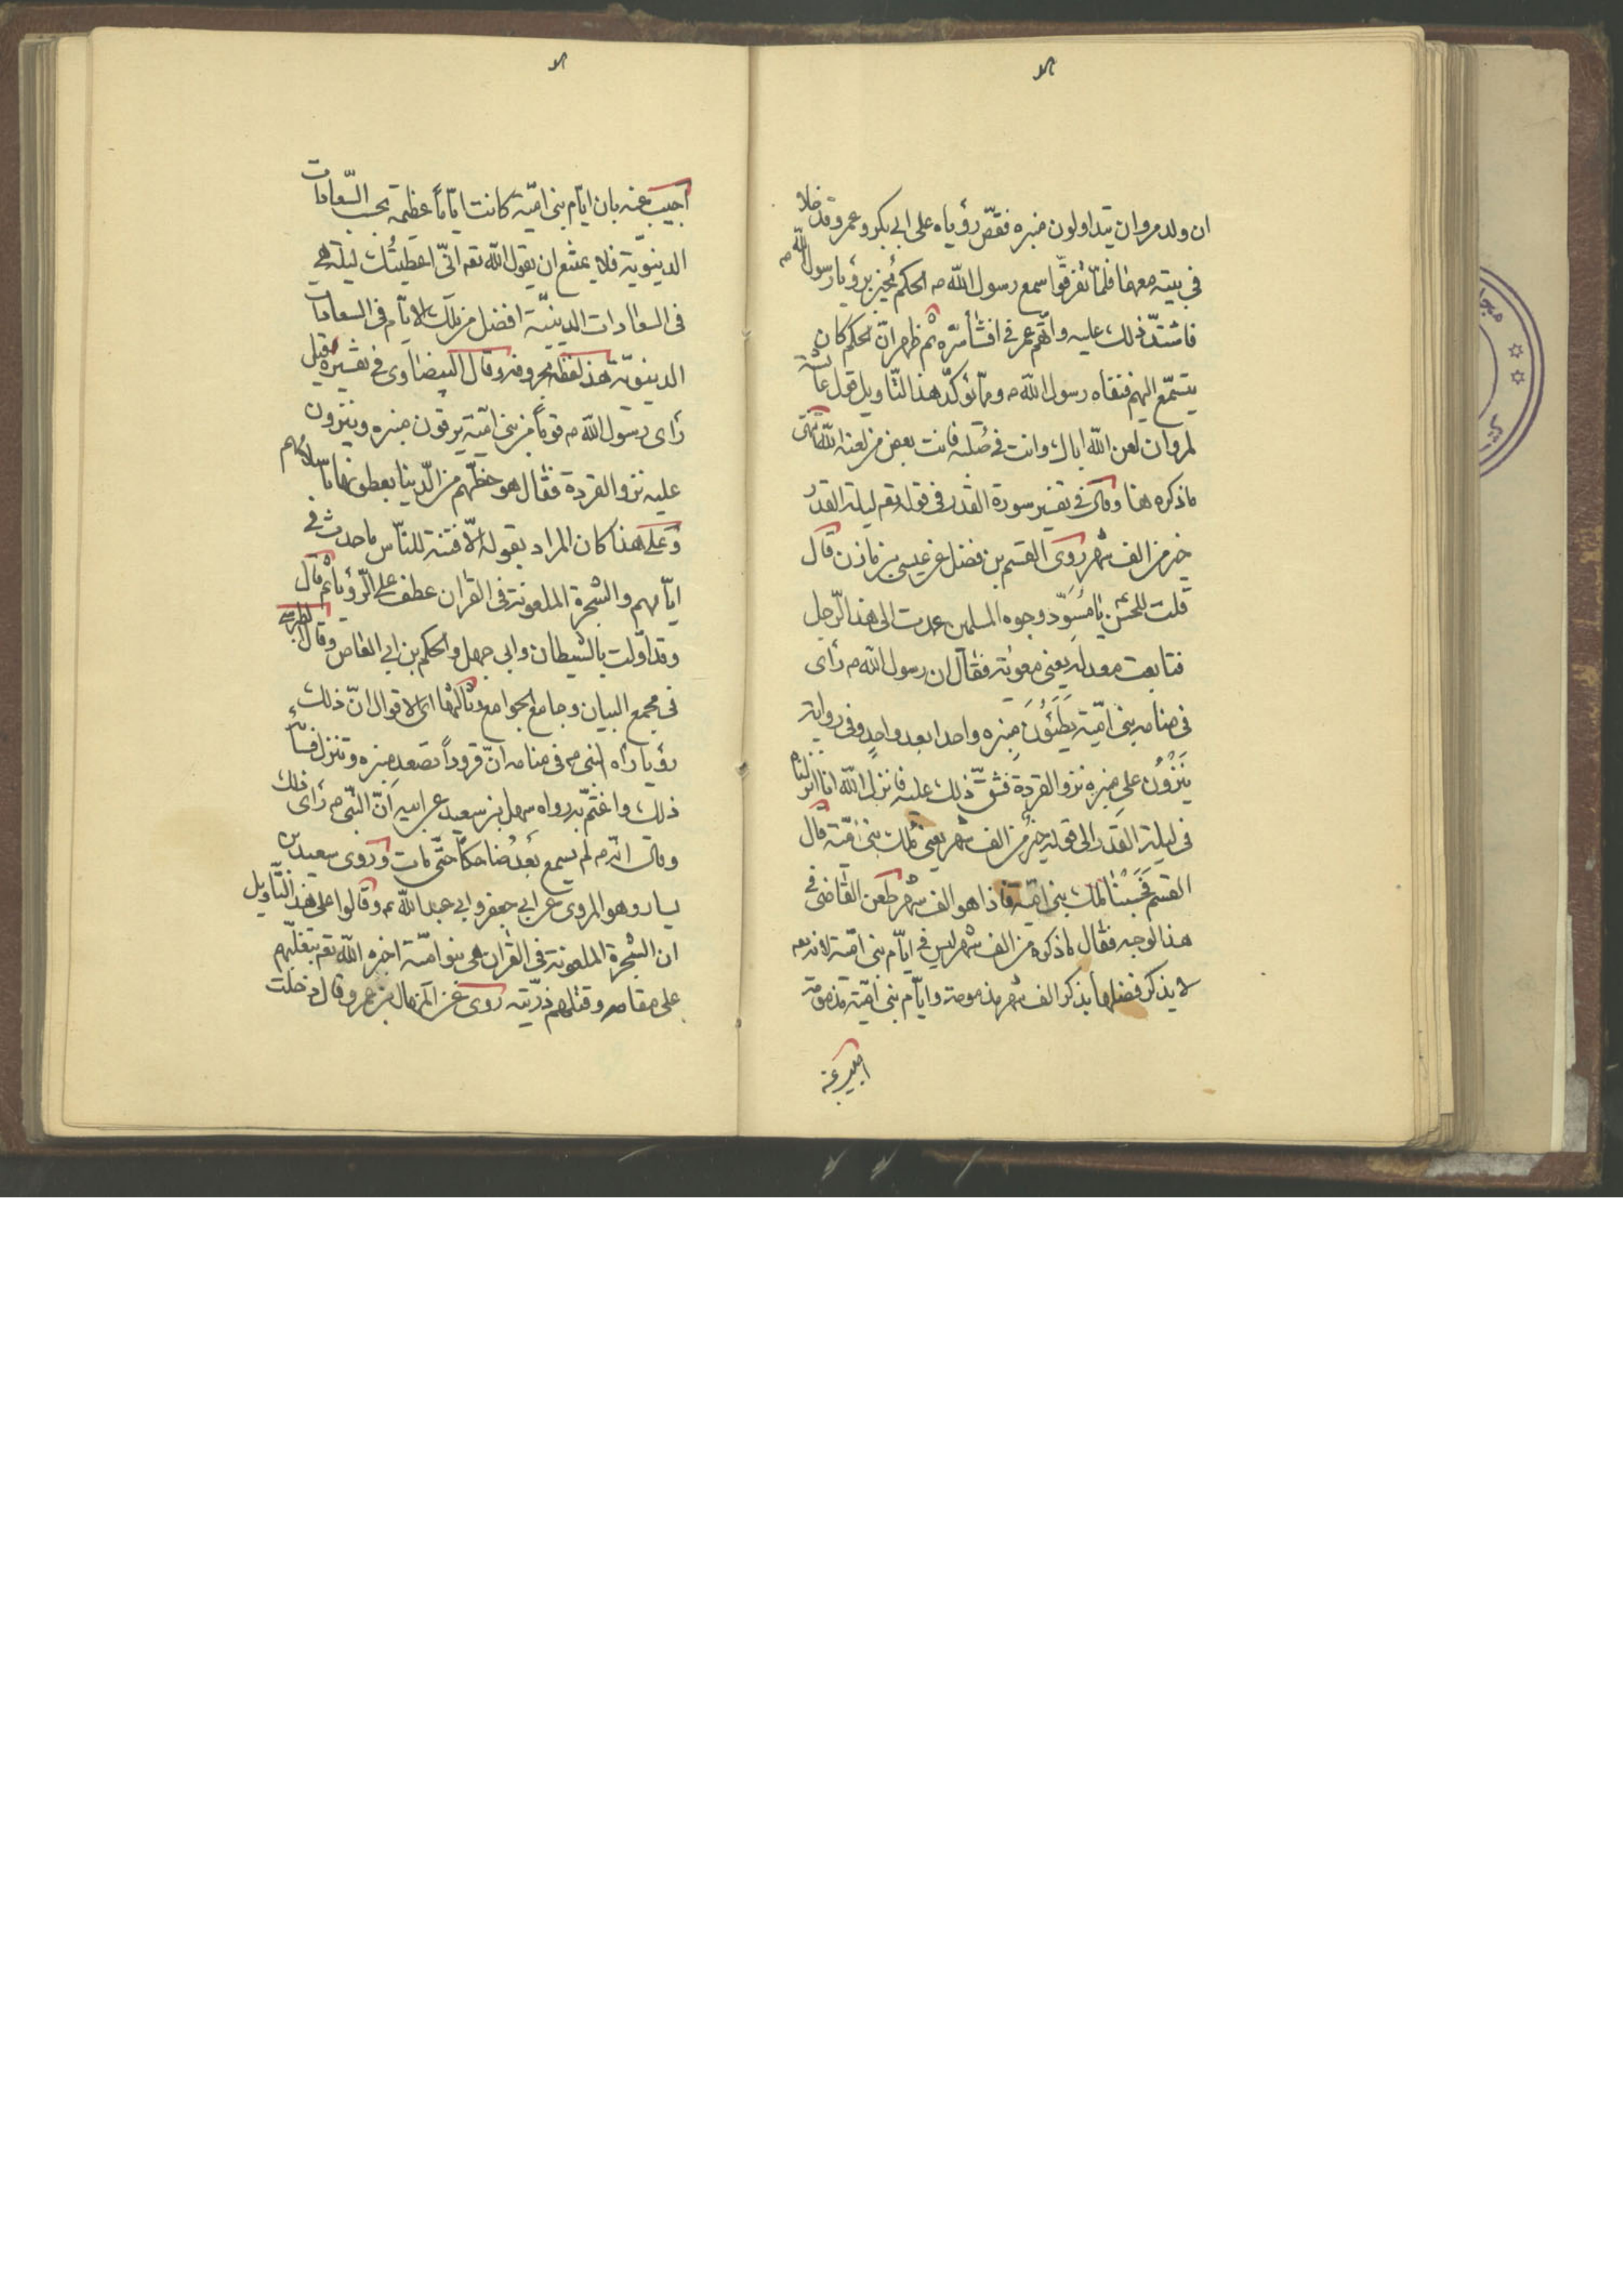 ان ولد مروان يتداولون منبره فقصّ رؤياه على ابي بكر وعمر وقد خلا
في بيته معهما فلمّا تفرقّوا سمع رسول اللّه ص الحكم يخبر برؤيا رسول اللّه ص
فاشتدّ ذلك عليه واتّهم عمر في افشا سرّه ثم ظهر انّ الحكم كان
يتسمّع اليهم فنفاه رسول اللّه ص ومما يؤكّد هذا التّاويل قول عائشة
لمروان لعن اللّه اباك وانت في صُلبه فانت بعض من لعنه اللّه انتهى
ما ذكره هنا وقال في تفسير سورة القدر في قوله تعم ليلة القدر
خير من الف شهر روى القسم بن فضل عن عيسى بن مازن قال
قلت للحسن يا مُسَوِّد وجوه المسلمين عمدت الى هذا الرّجل
فتابعت معه له يعني معوية فقال ان رسول اللّه ص رأى
في منامه بني اميّة يَطَئُونَ منبره واحدا بعد واحدٍ وفي رواية
يَنْزُوُن على منبره نزو القردة فشقّ ذلك عليه فانزل اللّه انا انزلناه
في ليلة القدر الى قوله خير من الف شهر يعني ملك بني اميّة قال
القسم فَحَسَبْنا ملك بني اميّة فاذا هو الف شهر طعن القاضي في
هذا الوجه فقال ما ذكره من الف شهر ليس في ايّام بني اميّة لانه تعم
لا يذكر فضلها بذكر الف شهر مذمومة وايّام بني اميّة مذمومة
اجيب عنه
اجيب عنه بان ايّام بني اميّة كانت ايّاماً عظيمة بحسب السّعادات
الدينويّة فلا يمتنع ان يقول اللّه تعم انّي اعطيتُك ليلة هي
في السعادات الدينيّة افضل من تلك الايّام في السعادات
الدينويّة هذا لفظه بحروفه وقال البيضاوى في تفسيره قيل
رأى رسول اللّه ص قوماً من بني اميّة يرقون منبره وينزون
عليه نزو القردة فقال هو حظّهم من الدّينا يعطونها باسلامهم
وعلى هذا كان المراد بقوله الّا فتنة للنّاس ما حدث في
ايّامهم والشجرة الملعونة في القران عطف على الرّؤيا ثم قال
وقد اوّلت بالشيطان وابي جهل والحكم بن ابي العاص وقال الطبرسي
في مجمع البيان وجامع الجوامع وثالثها اى الاقوال انّ ذلك
رؤيا رأه النبي ص في منامه انّ قروداً تصعد منبره وتنزل فسائه
ذلك واغتمّ به رواه سهل بن سعيد عن ابيه اَنّ النبّي ص رأى ذلك
وقال انّه ص لم يسمع بَعدُ ضاحكاً حتّى مات وروى سعيد بن
يسار وهو المروى عن ابي جعفر وابي عبد اللّه ع وقالوا على هذا التّاويل
ان الشجرة الملعونة في القران هي بنو اميّة اخبره اللّه تعم بتغلّبهم
على مقامه وقتلهم ذرّيته روى عن المنهال بن عمر وقال دخلت